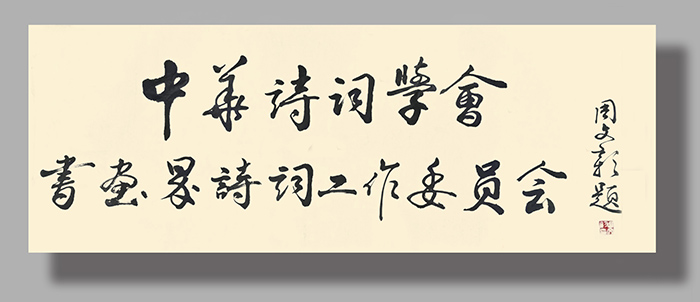 中华诗词學會
書画界詩词工作委员会
周文彰题